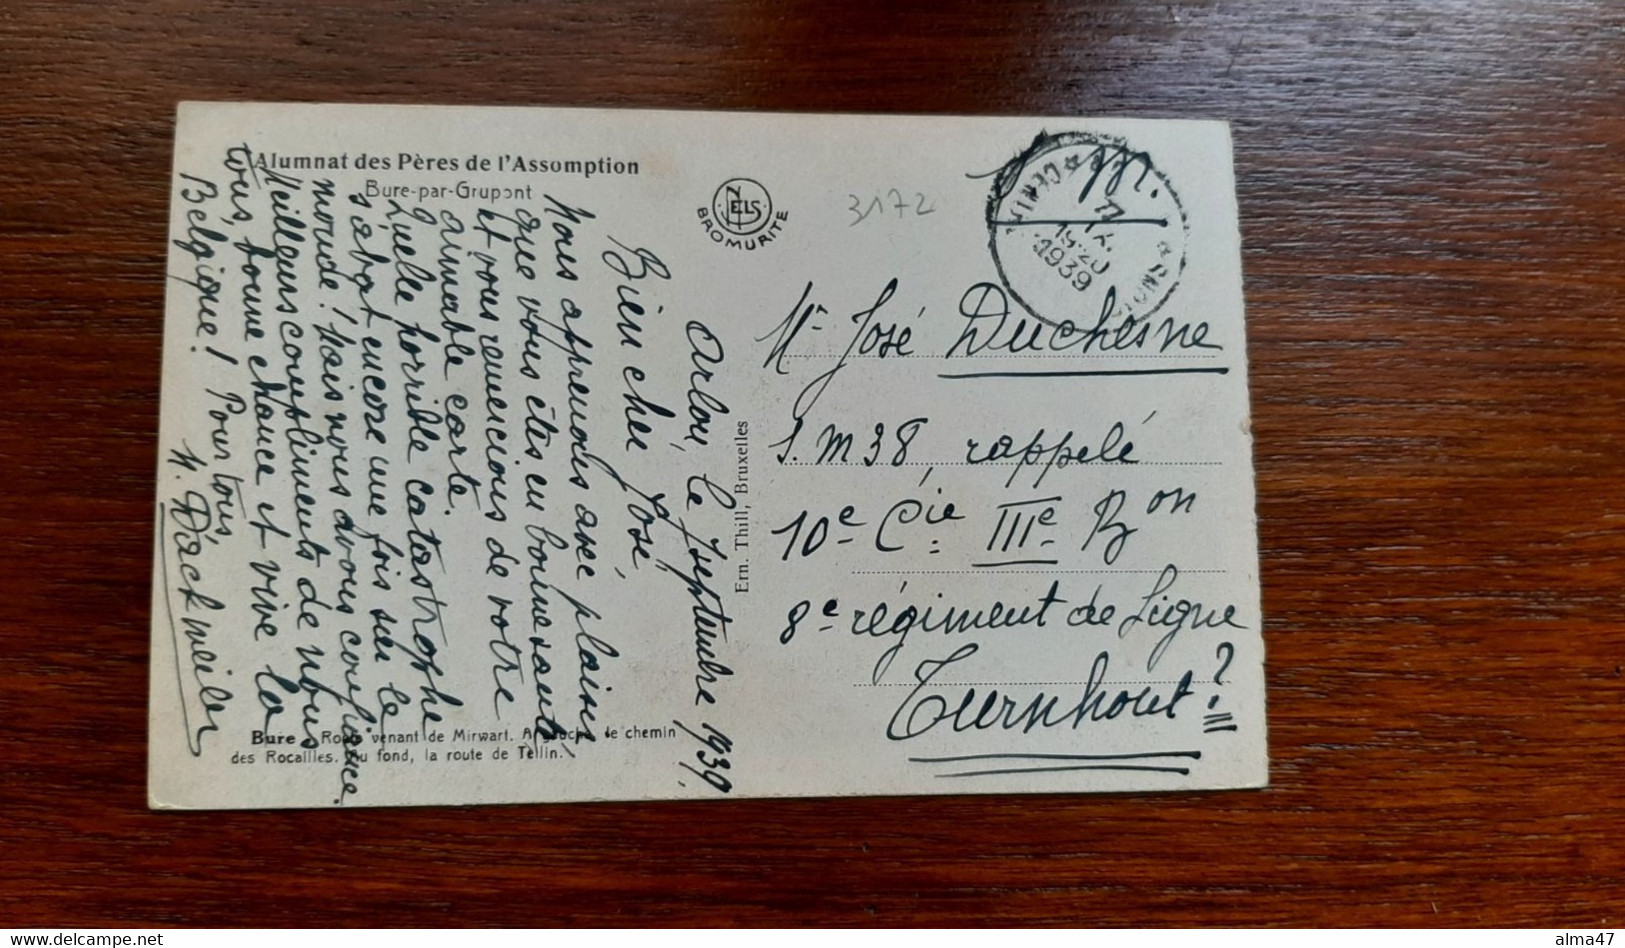 Alumnat des Pères de l'Assomption
Bure-par-Grupont
NELS
BROMURITE
3172
1939
Mr José Duchesne
S.M 38, rappelé
10e Cie IIIe Bon
8e régiment de Ligne
Turnhout?
Ern. Thill, Bruxelles
Arlon, le septembre 1939.
Bien cher José,
Nous apprenons avec plaisir
que vous êtes en bonne santé
et vous remercions de votre
aimable carte.
Quelle horrible catastrophe
s'abat encore une fois sur le
monde! Mais nous avons confiance.
Meilleurs compliments de nous
tous, bonne chance et vive la
Belgique! Pour tous,
N. Dackweiler
Bure - Route venant de Mirwart. A gauche, le chemin
des Rocailles. Au fond, la route de Tellin.
alma47